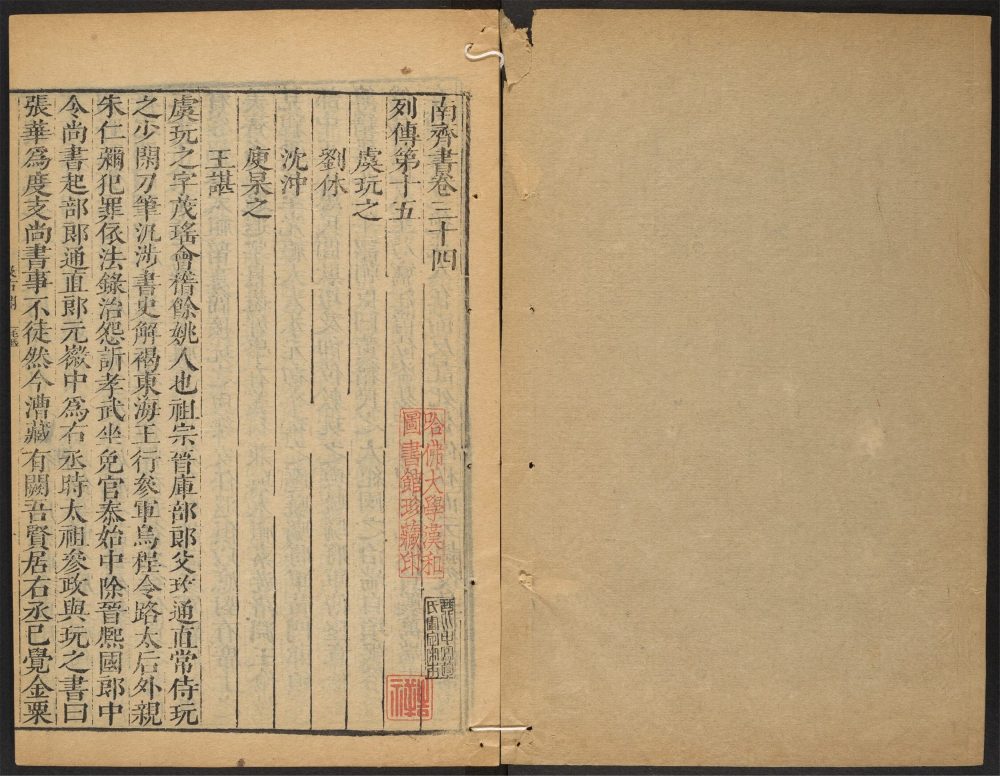 南齊書卷三十四
列傳第十五
虞玩之
劉休
沈沖
庾杲之
王諶
虞玩之字茂瑤會稽餘姚人也祖宗晉庫部郎父玫通直常侍玩
之少閑刀筆汎涉書史解褐東海王行參軍烏程令路太后外親
朱仁彌犯罪依法錄治怨訴孝武坐免官泰始中除晉熙國郎中
令尚書起部郎通直郎元徽中爲右丞時太祖參政與玩之書曰
張華爲度支尚書事不徒然今漕藏有闕吾賢居右丞已覺金粟
哈佛大學漢和
圖書館珍藏印